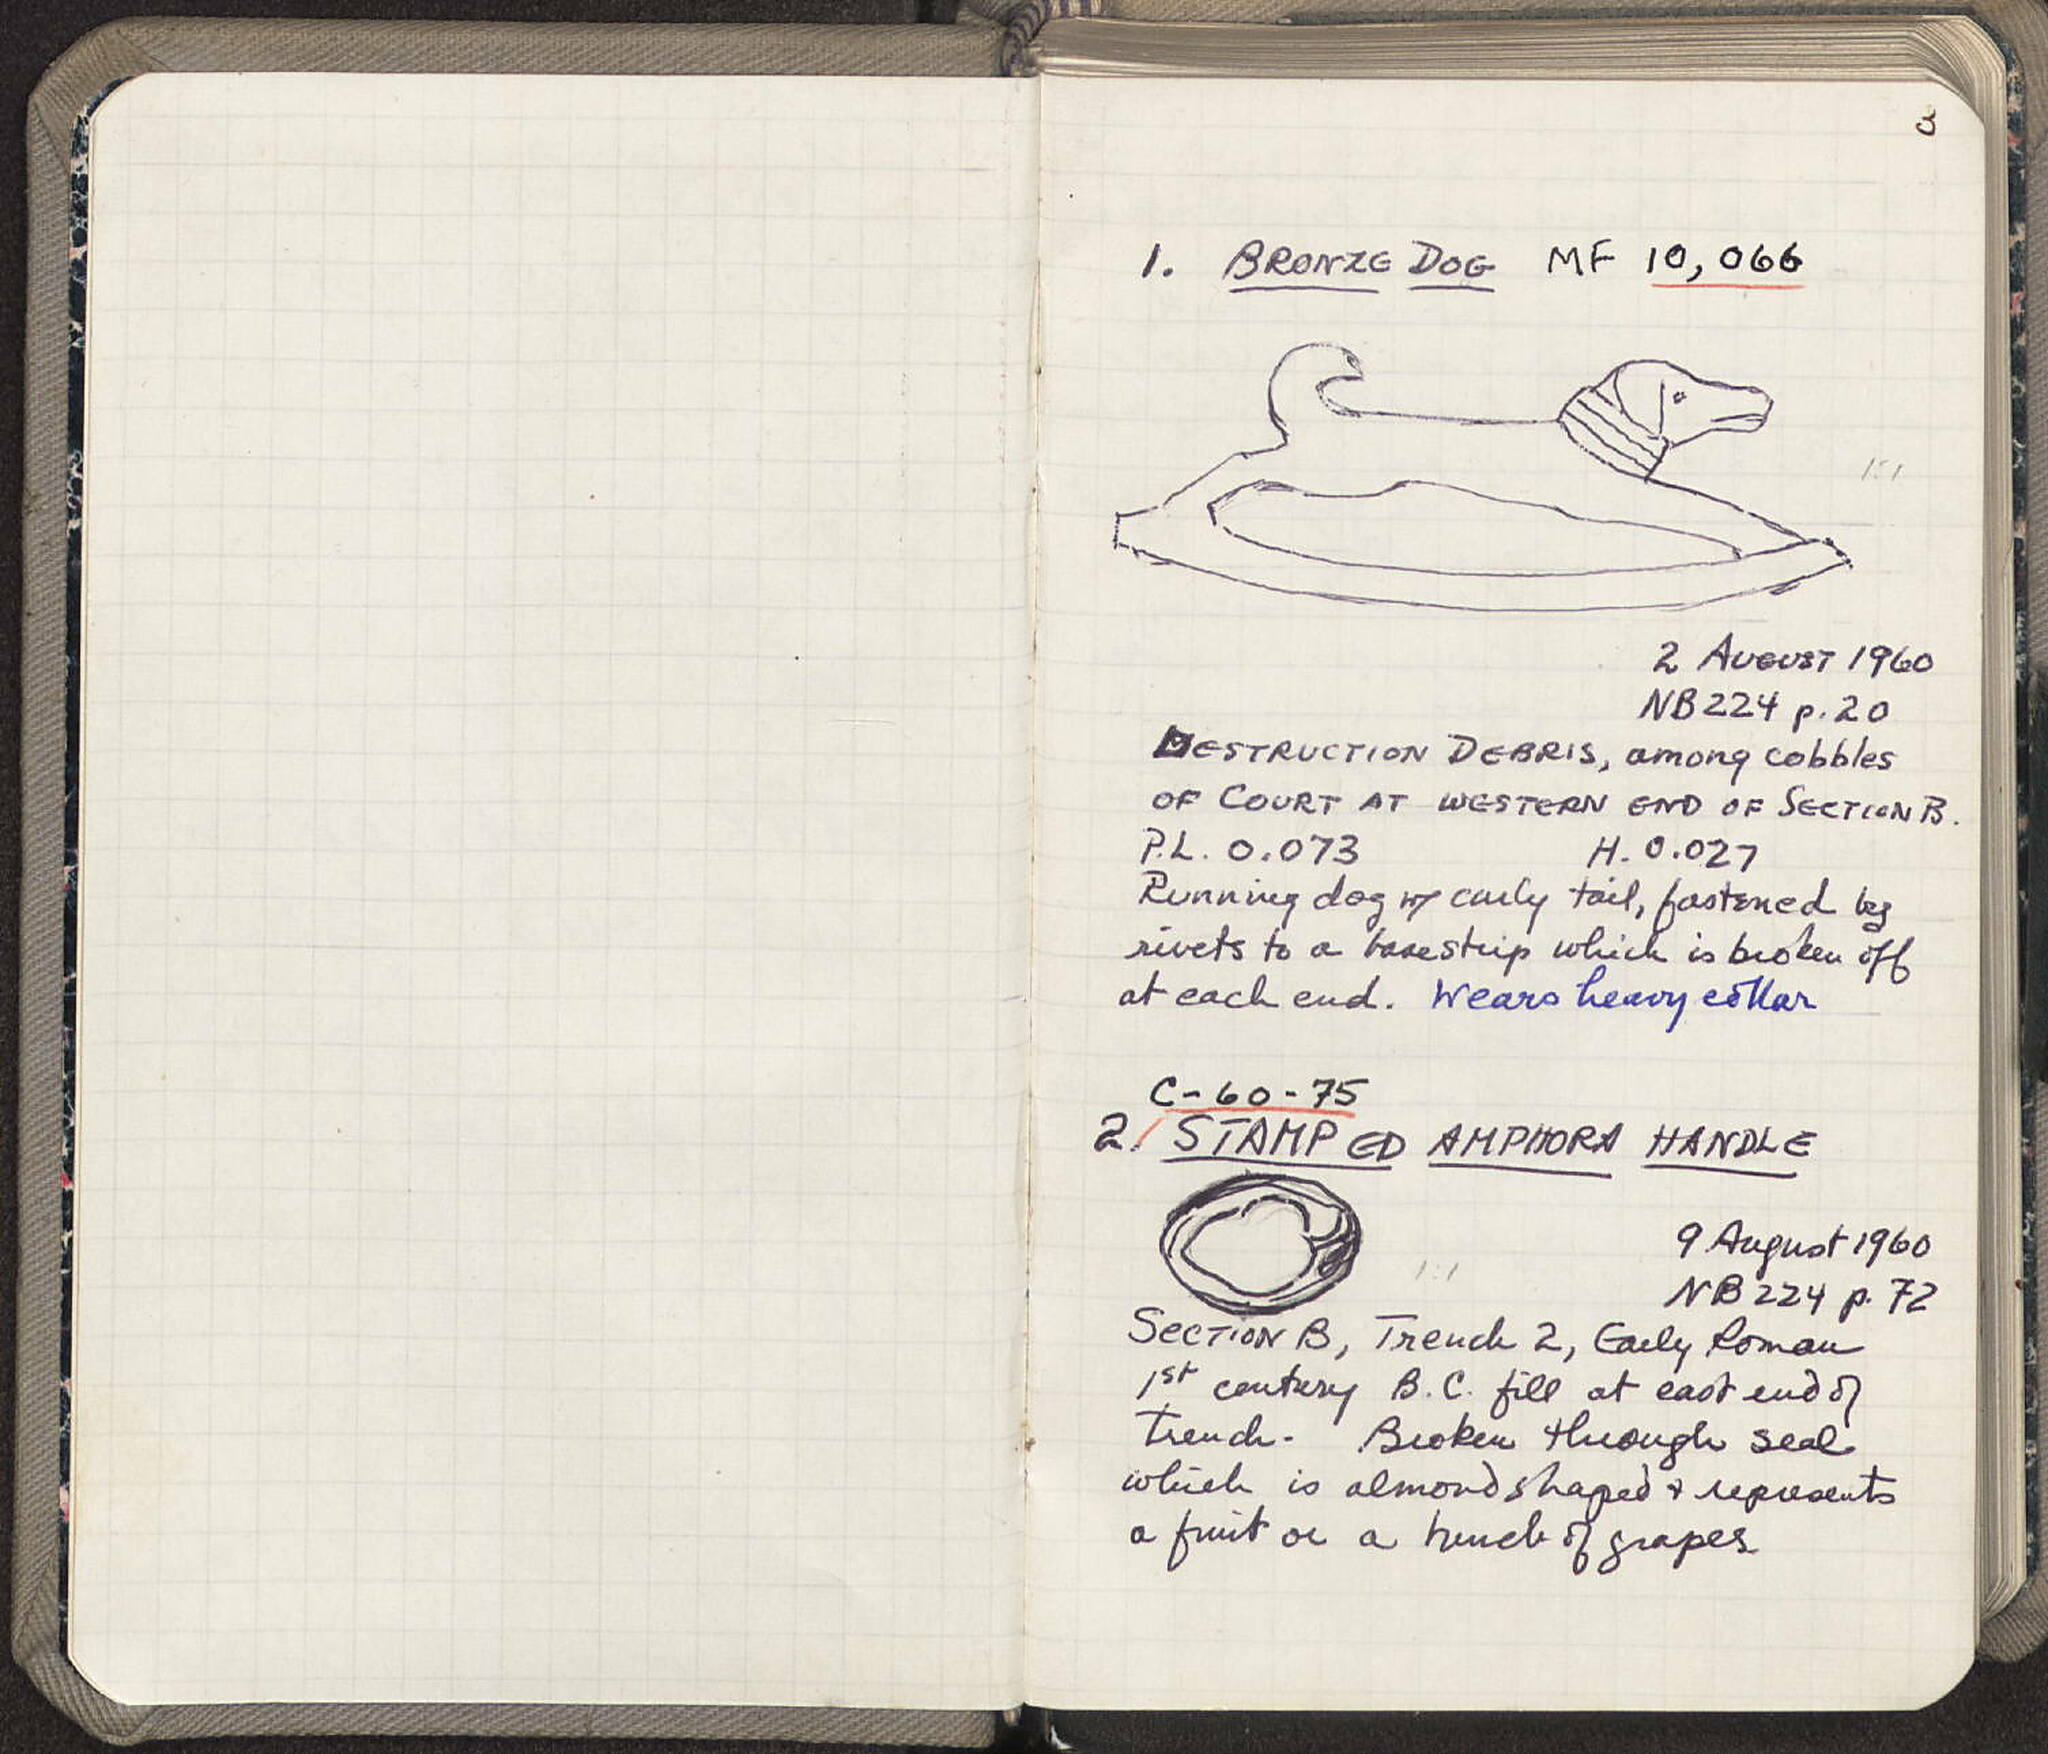 3
1. BRONZE DOG MF 10,066
1:1
2 AUGUST 1960
NB 224 p. 20
DESTRUCTION DEBRIS, among cobbles
OF COURT AT WESTERN END OF SECTION B.
P.L. 0.073 H. 0.027
Running dog w/ curly tail, fastened by
rivets to a base strip which is broken off
at each end. Wears heavy collar
C-60-75
2. STAMPED AMPHORA HANDLE
9 August 1960
1:1
NB 224 p. 72
SECTION B, Trench 2, Early Roman
1st century B.C. fill at east end of
Trench. Broken through seal
which is almond shaped & represents
a fruit or a bunch of grapes